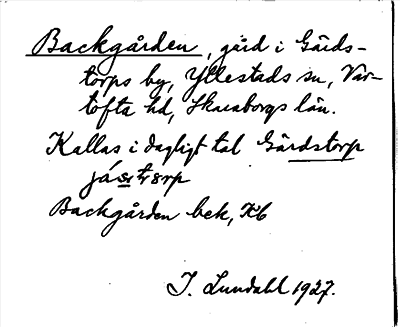 Backgården, gård i Gärds-
torps by, Yllestads sn, Var-
tofta hd, Skaraborgs län.
Kallas i dagligt tal Gärdstorp
Backgården bek, Kb
I. Lundahl 1927.